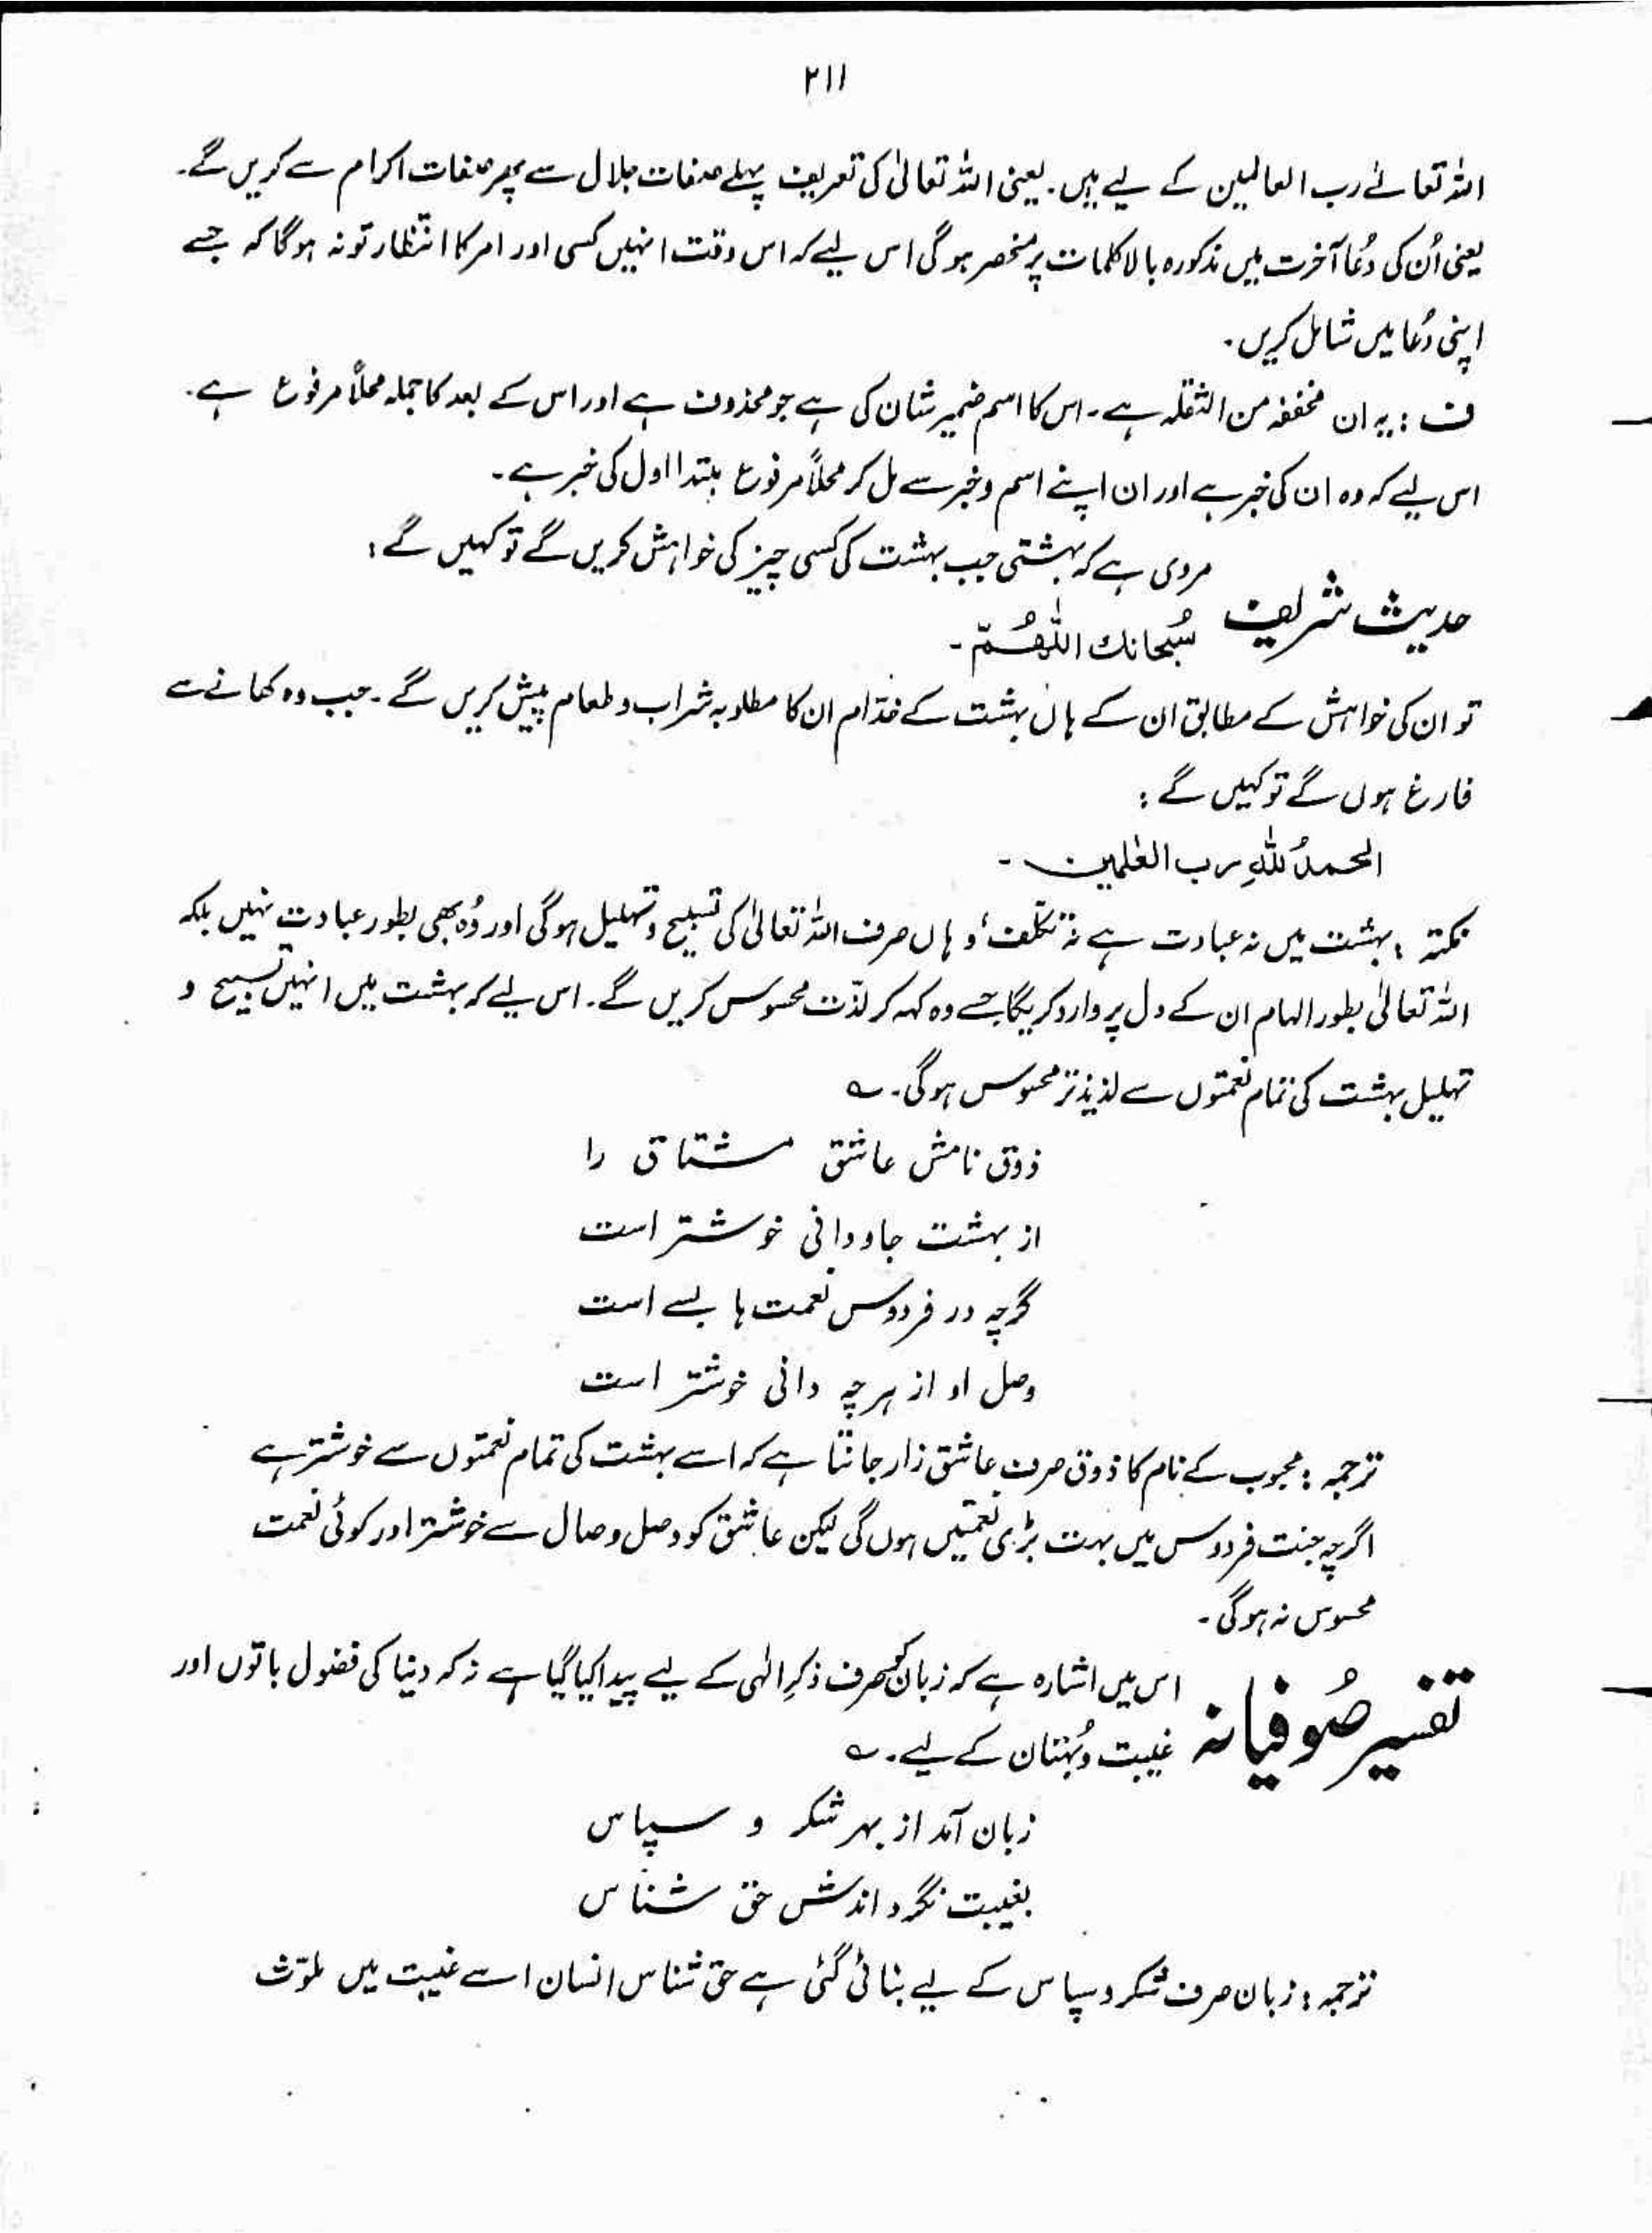 ۲۱۱
اللہ تعالےٰ رب العالمین کے لیے ہیں۔ یعنی اللہ تعالیٰ کی تعریف پہلے صفات جلال سے پھر صفات اکرام سے کریں گے۔
یعنی اُن کی دُعا آخرت میں مذکورہ بالا کلمات پر منحصر ہوگی اس لیے کہ اس وقت انہیں کسی اور امر کا انتظار تو نہ ہوگا کہ جسے
اپنی دُعا میں شامل کریں۔
ف : یہ ان مخففہ من الثقلہ ہے۔ اس کا اسم ضمیر شان کی ہے جو محذوف ہے اور اس کے بعد کا جملہ محلاً مرفوع ہے۔
اس لیے کہ وہ ان کی خبر ہے اور ان اپنے اسم و خبر سے مل کر محلاً مرفوع مبتدا اول کی خبر ہے۔
حدیث شریف مروی ہے کہ بہشتی جب بہشت کی کسی چیز کی خواہش کریں گے تو کہیں گے :
سُبحانك اللّٰھُمّ۔
تو ان کی خواہش کے مطابق ان کے ہاں بہشت کے خدّام ان کا مطلوبہ شراب و طعام پیش کریں گے۔ جب وہ کھانے سے
فارغ ہوں گے تو کہیں گے :
الحمدُ للّٰہِ رب العٰلمین۔
نکتہ : بہشت میں نہ عبادت ہے نہ تکلّف، وہاں صرف اللہ تعالیٰ کی تسبیح و تہلیل ہوگی اور وُہ بھی بطور عبادت نہیں بلکہ
اللہ تعالیٰ بطور الہام ان کے دل پر وارد کریگا جسے وہ کہہ کر لذّت محسوس کریں گے۔ اس لیے کہ بہشت میں انہیں تسبیح و
تہلیل بہشت کی تمام نعمتوں سے لذیذ تر محسوس ہوگی۔ ؎
ذوق نامش عاشق مشتاق را
از بہشت جاودانی خوشتر است
گرچہ در فردوس نعمت ہا بسے است
وصل او از ہرچہ دانی خوشتر است
ترجمہ : محبوب کے نام کا ذوق صرف عاشق زار جانتا ہے کہ اسے بہشت کی تمام نعمتوں سے خوشتر ہے
اگرچہ جنت فردوس میں بہت بڑی نعمتیں ہوں گی لیکن عاشق کو وصل وصال سے خوشتر اور کوئی نعمت
محسوس نہ ہوگی۔
تفسیر صُوفیانہ اس میں اشارہ ہے کہ زبان کو صرف ذکرِ الٰہی کے لیے پیدا کیا گیا ہے نہ کہ دنیا کی فضول باتوں اور
غیبت و بُہتان کے لیے۔ ؎
زبان آمد از بہر شکر و سپاس
بغیبت نگرداندش حق شناس
ترجمہ : زبان صرف شکر و سپاس کے لیے بنائی گئی ہے حق شناس انسان اسے غیبت میں ملوّث